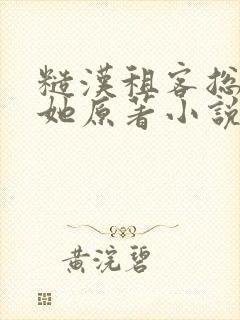 糙漢租客总
她原著小說
黃浣碧